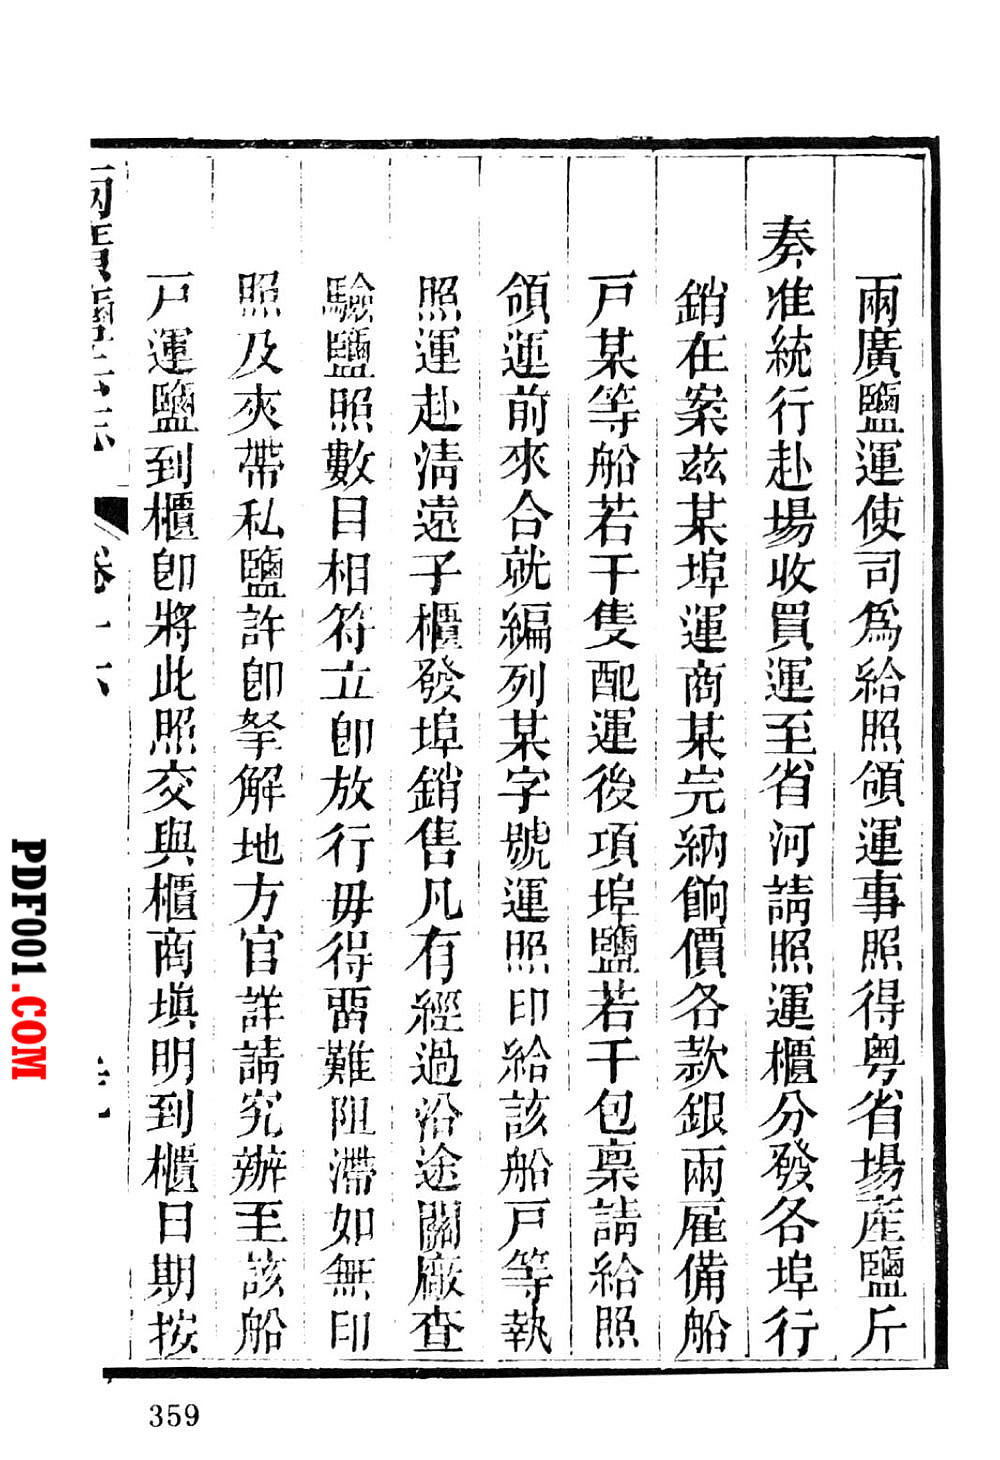 兩廣鹽運使司爲給照領運事照得粤省場産鹽斤
奏准統行赴場收買運至省河請照運櫃分發各埠行
銷在案兹某埠運商某完納餉價各款銀兩雇備船
戸某等船若干隻配運後項埠鹽若干包稟請給照
領運前來合就編列某字號運照印給該船戸等執
照運赴清遠子櫃發埠銷售凡有經過沿途關廠查
驗鹽照數目相符立卽放行毋得畱難阻滯如無印
照及夾帶私鹽許卽拏解地方官詳請究辦至該船
戸運鹽到櫃卽將此照交與櫃商塡明到櫃日期按
兩廣鹽法志
卷十六
359
PDF001.COM